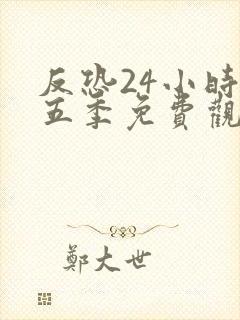 反恐24小時
五季免費觀
鄭大世